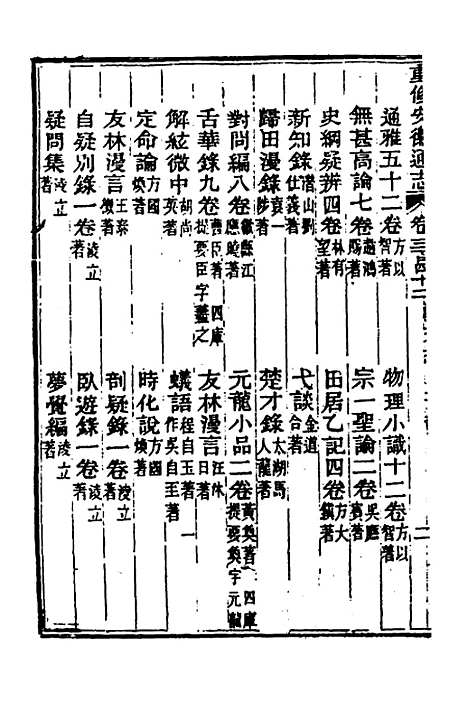 重修安徽通志 卷三百四十二
通雅五十二卷方以智著 物理小識十二卷方以智著
無甚高論七卷趙鴻賜著 宗一聖論二卷吳應賓著
史綱疑辨四卷林有望著 田居乙記四卷方大鎮著
新知錄潛山劉仕義著 弋談金道合著
歸田漫錄袁一著 楚才錄太湖馬人龍著
對問編八卷歙縣江應曉著 元龍小品二卷黃奐著 四庫提要奐字元龍
舌華錄九卷曹臣著 四庫提要臣字藎之 友林漫言汪沐日著
解絃微中胡尚英著 蟻語程自玉著 一作吳自玉著
定命論方國煥著 時化說方國煥著
友林漫言王泰徵著 剖疑錄一卷淩立著
自疑別錄一卷淩立著 臥遊錄一卷淩立著
疑問集淩立著 夢覺編淩立著